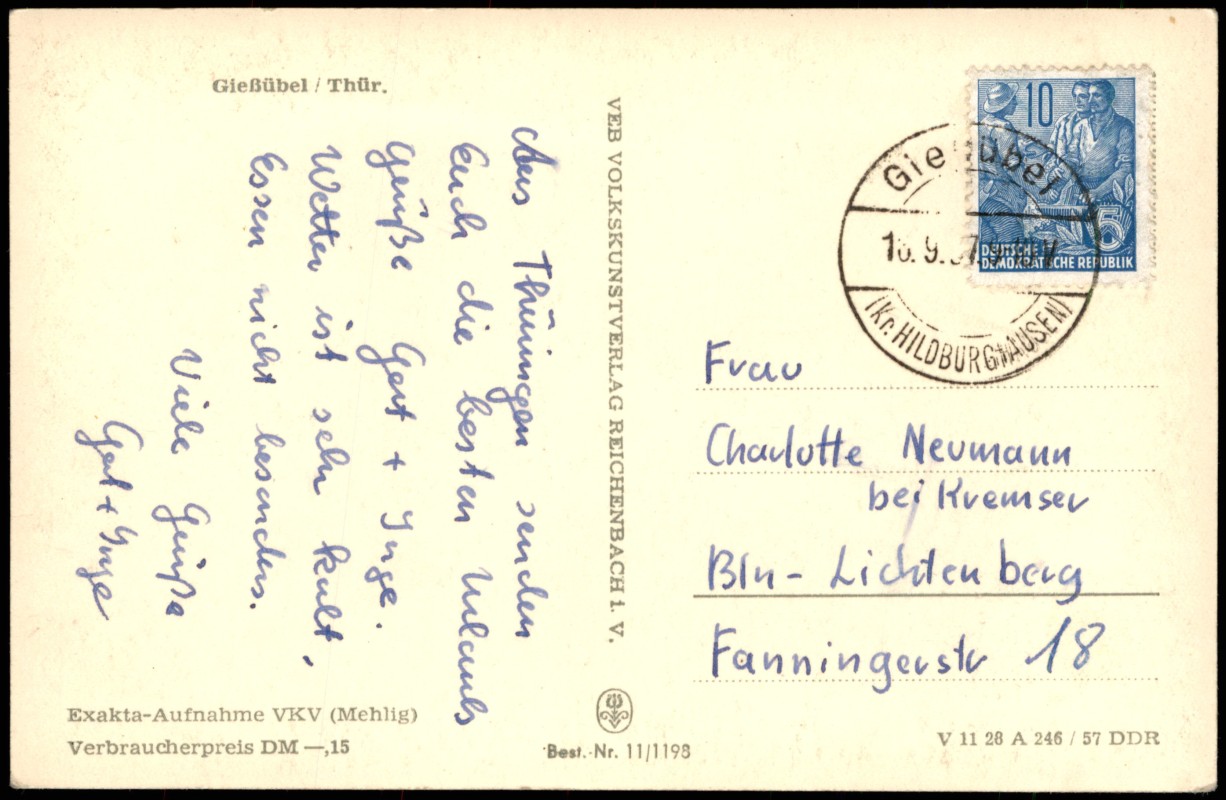 Gießübel / Thür.
Aus Thüringen senden
Euch die besten Urlaubs
Grüße Gert + Inge.
Wetter ist sehr kalt,
Essen nicht besonders.
Viele Grüße
Gert + Inge
Exakta-Aufnahme VKV (Mehlig)
Verbraucherpreis DM —,15
VEB VOLKSKUNSTVERLAG REICHENBACH i. V.
Best.-Nr. 11/1198
10
DEUTSCHE
DEMOKRATISCHE REPUBLIK
Gießübel
9.
(Kr. HILDBURGHAUSEN)
Frau
Charlotte Neumann
bei Kremser
Bln - Lichtenberg
Fanningerstr 18
V 11 28 A 246 / 57 DDR